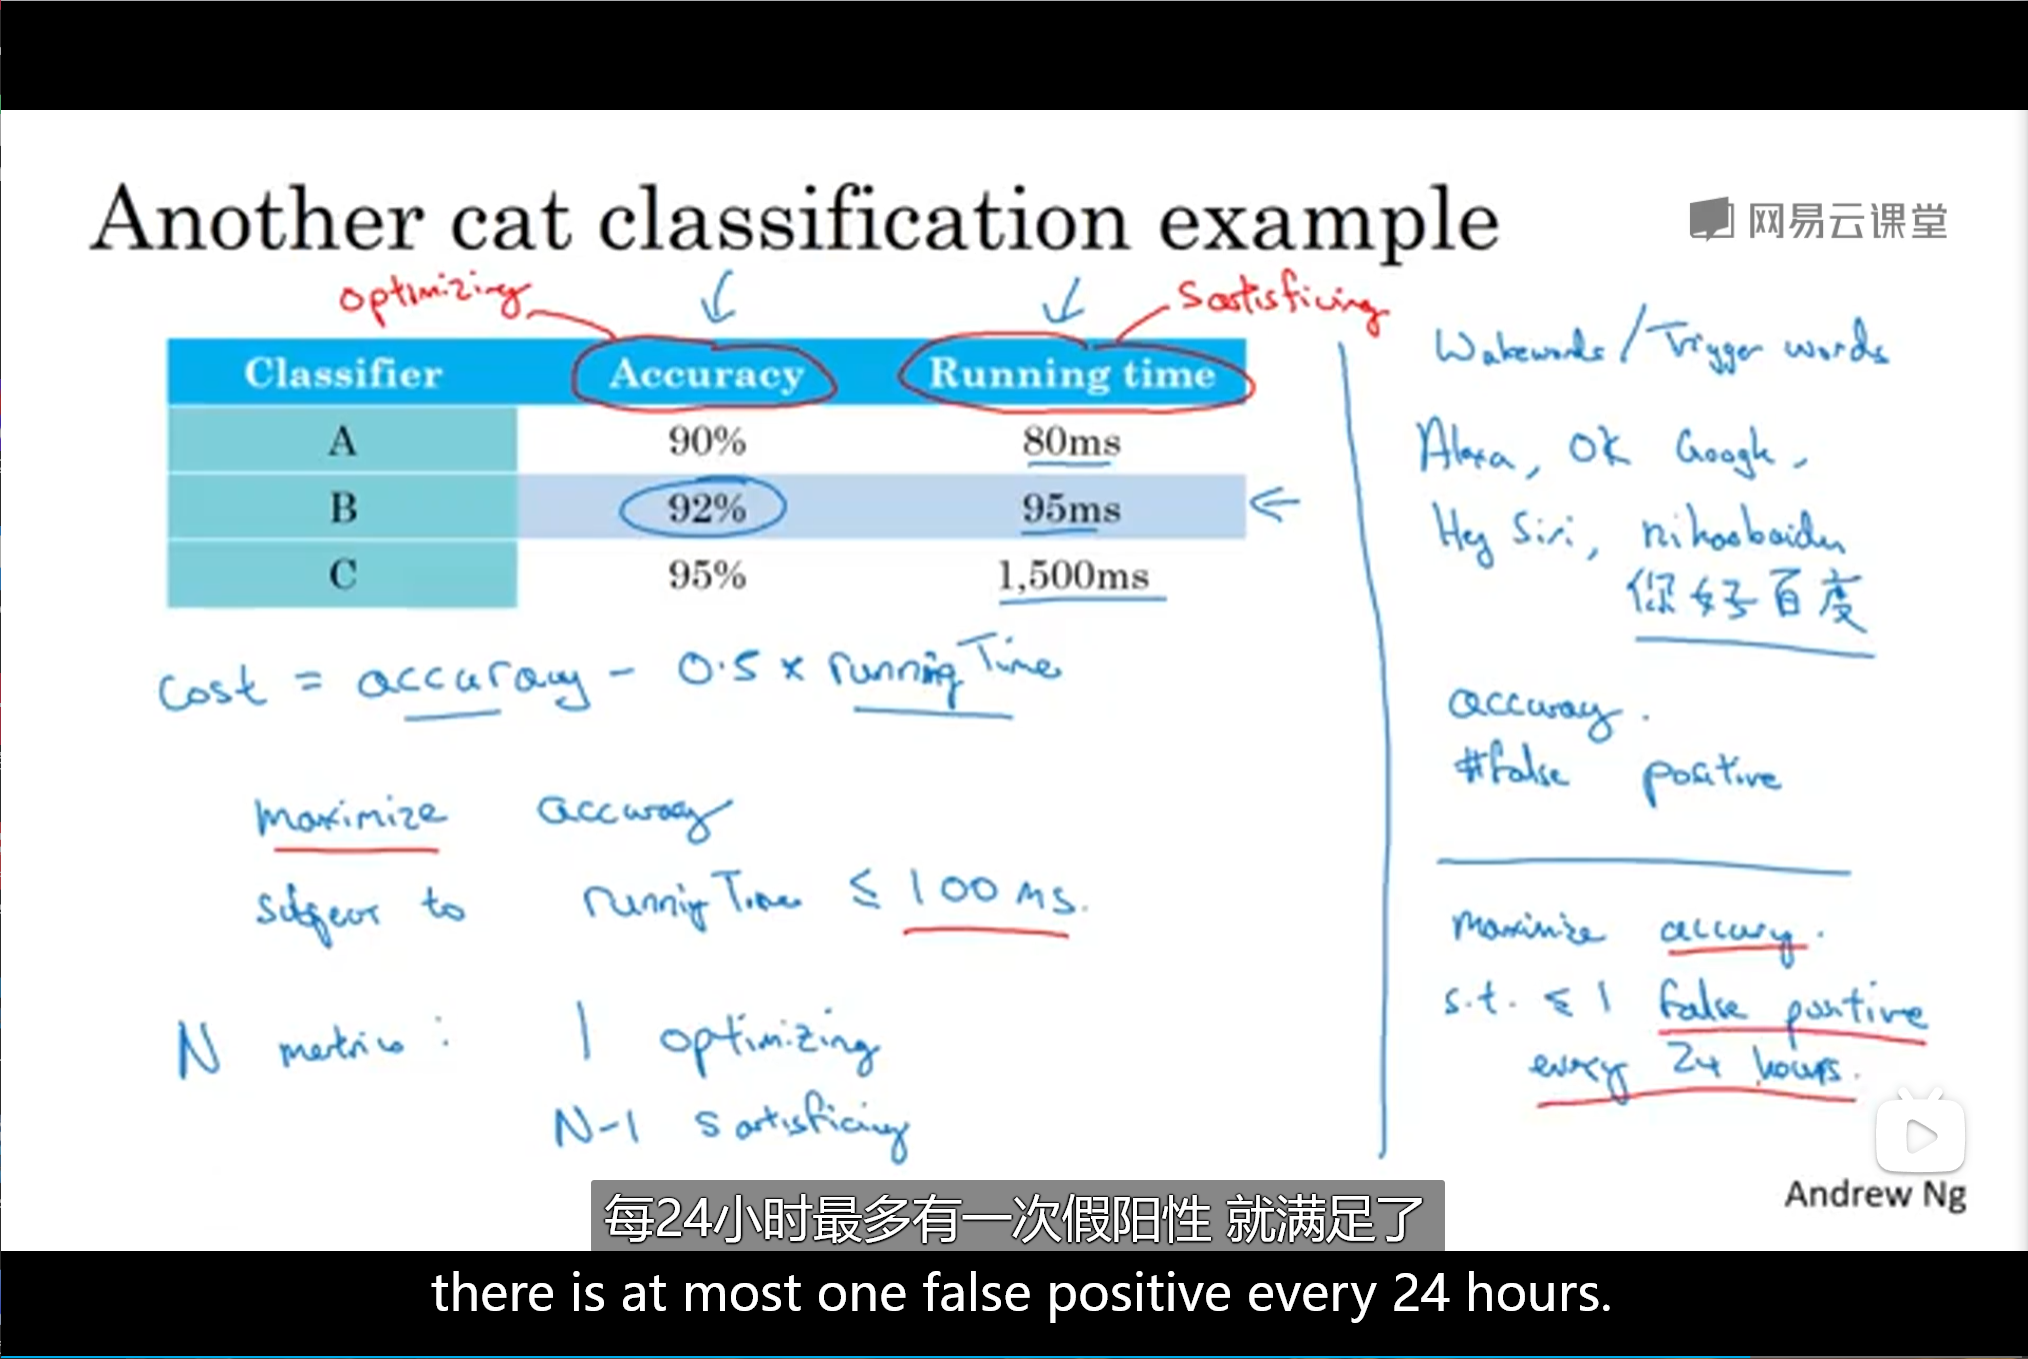 Another cat classification example
网易云课堂
optimizing
Satisficing
Classifier Accuracy Running time
A 90% 80ms
B 92% 95ms
C 95% 1,500ms
Cost = accuracy - 0.5 x runningTime
maximize accuracy
subject to runningTime ≤ 100 ms.
N metrics: 1 optimizing
N-1 satisficing
Wakewords / Trigger words
Alexa, OK Google,
Hey Siri, nihaobaidu
你好百度
accuracy.
#false positive
Maximize accuracy.
s.t. ≤ 1 false positive
every 24 hours.
Andrew Ng
每24小时最多有一次假阳性 就满足了
there is at most one false positive every 24 hours.